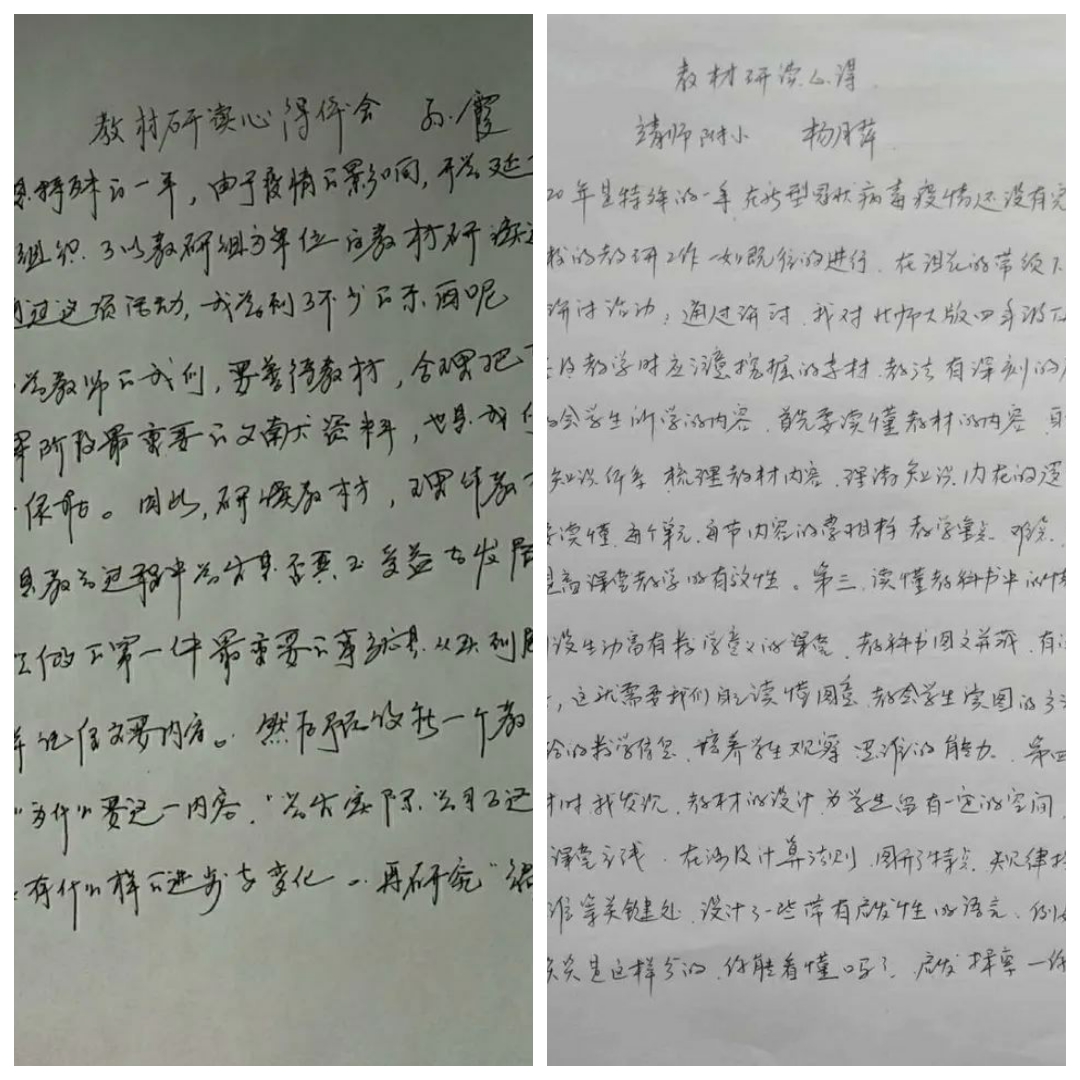 教材研读心得体会 孙霞
是特殊的一年，由于疫情的影响，开学延
组织了以教研组为单位的教材研读
通过这项活动，我学到了不少的东西呢
为教师的我们，要善待教材，合理把
阶段最重要的文献资料，也是我
保证。因此，研读教材，理解教
是教学过程中学生是否真正受益与发展
要做的第一件最重要的事就是从头到尾
并记住主要内容。然后
"为什么要这一内容，"学生实际"学习了这
有什么样的进步与变化"再研究"
教材研读心得
靖师附小 杨月萍
20年是特殊的一年，在新型冠状病毒疫情还没有完
校的教研工作一如既往的进行，在组长的带领下
研讨活动；通过研讨，我对北师大版四年级
及教学时应注意挖掘的素材、教法有深刻的
会学生所学的内容，首先要读懂教材的内容，
知识体系，梳理教材内容，理清知识内在的逻
要读懂每个单元、每节内容的学习目标、教学重点、难点，
提高课堂教学的有效性。第三、读懂教科书中的情
设生动富有数学意义的课堂，教科书图文并茂，有
，这就需要我们自己读懂图意，教会学生读图的方法
给的数学信息，培养学生观察、思维的能力。第四
材时，我发现，教材的设计为学生留有一定的空间，
课堂主线，在涉及计算法则、图形特点、规律
难等关键处，设计了一些带有启发性的语言，例如
笑笑是这样分的，你能看懂吗？，启发、探索一